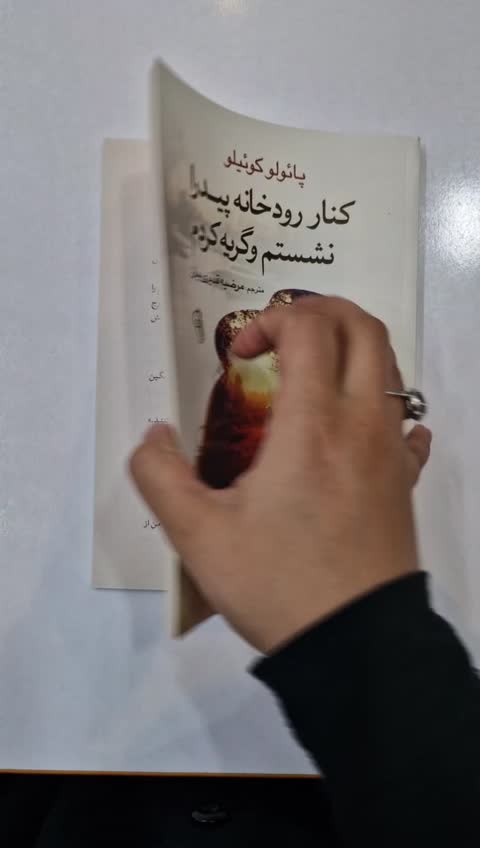 پائولو کوئیلو
کنار رودخانه پیدرا
نشستم و گریه کردم
مترجم مرضیه